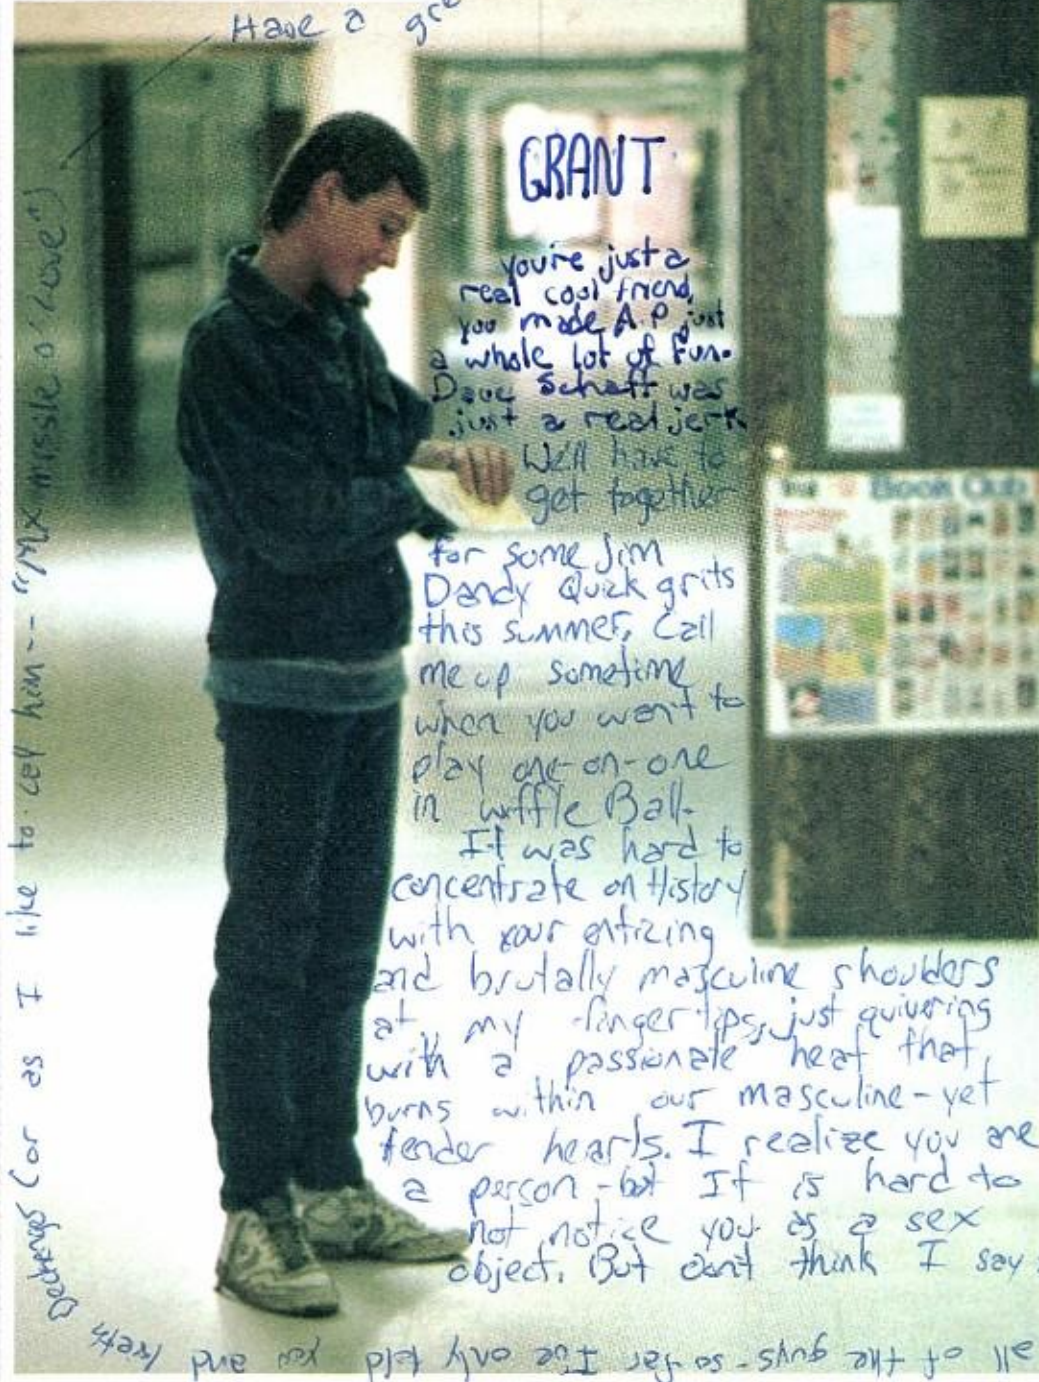 GRANT
you're just a
real cool friend,
you made A.P just
a whole lot of fun.
Dave Schaff was
just a real jerk
We'll have to
get together
for some Jim
Dandy Quick grits
this summer. Call
me up sometime
when you want to
play one-on-one
in wiffle Ball.
It was hard to
concentrate on History
with your entizing
and brutally masculine shoulders
at my fingertips, just quivering
with a passionate heat that
burns within our masculine-yet
tender hearts. I realize you are
a person, but It is hard to
not notice you as a sex
object. But don't think I say
all of the guys - so far I've only told you and Keith
(or as I like to call him-- "MX missle o' love")
Have a gre
Book Club